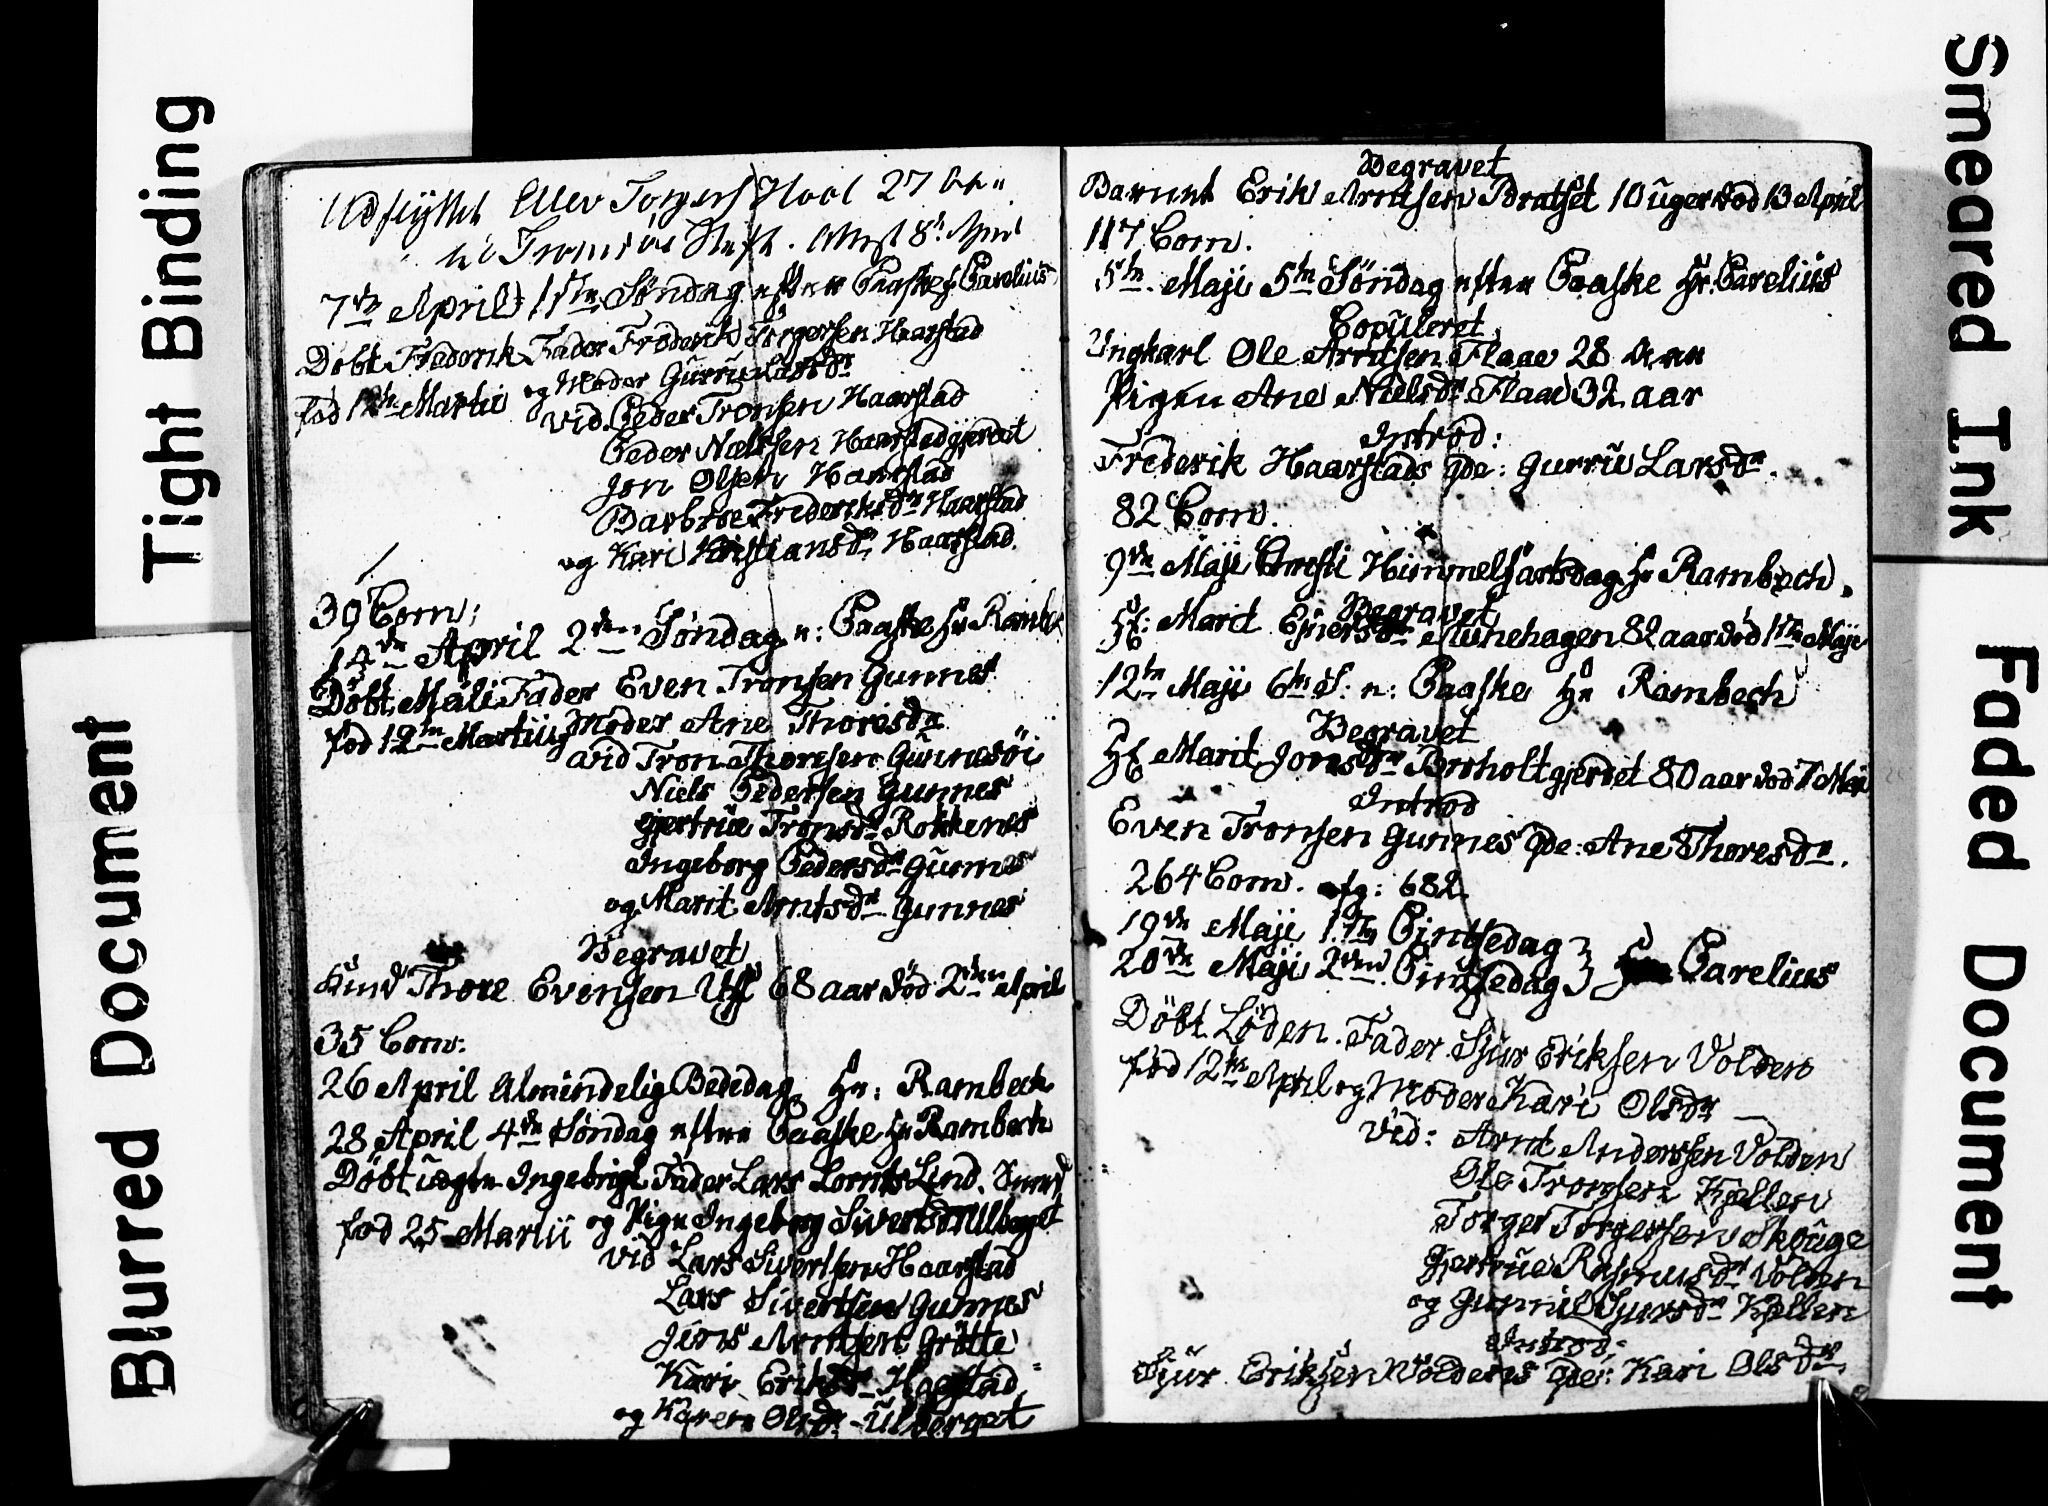 Tight Binding
Blurred Document
Smeared Ink
Faded Document
Udflyttet Ellev Torgers Hool 27
til Tromsøe Attest 8de April
7de April 1ste Søndag efter Paaske hr Parelius
Døbt Frederik Fader Frederik Torgersen Haarstad
fød 12te Martii og Moder Gurru Larsdr
vid Peder Tronsen Haarstad
Peder Nielssen Haarstadgjerdet
Jon Olsen Haarstad
Barbroe Frederiksdr Haarstad
og Kari Kristiansdr Haarstad
39 Com:
14de April 2den Søndag e: Paaske hr Rambe
Døbt Mali Fader Even Tronsen Gunnes
fød 12te Martii Moder Ane Thoresdr
vid Tron Thoresen Gunnesøi
Niels Pedersen Gunnes
Gjertrue Tronsdr Rokkenes
Ingeborg Pedersdr Gunnes
og Marit Arntsdr Gunnes
Begravet
Thore Evensen 68 aar død 2den April
35 Com:
26 April Almindelig Bededag hr: Rambech
28 April 4de Søndag efter Paaske hr Rambech
Døbt uægte Ingebrigt Fader Lars Lornts Lind
fød 25 Martii og Pige Ingeborg Sivertsdr Ulberget
vid Lars Sivertsen Haarstad
Lars Sivertsen Gunnes
Jens Arntsen Grøtte
Kari Eriksdr Haarstad
og Karen Olsdr Ulberget
Begravet
Barnet Erik Arntsen Bratset 10 uger død 13 April
117 Com.
5te Maji 5te Søndag efter Paaske hr. Parelius
Copuleret
Ungkarl Ole Arntsen Flaae 28 aar
Pigen Ane Nielsdr Flaae 32 aar
Introd:
Frederik Haarstads qde: Gurru Larsdr.
82 Com.
9de Maji Christi Himmelfartsdag hr Rambech.
Begravet
Marit Ejnersdr Munehagen 82 aar død 1ste Maje
12te Maji 6te S: e: Paaske hr Rambech
Begravet
Marit Jonsdr Borholtgjerdet 80 aar død 7 Maji
Introd
Even Tronsen Gunnes qde: Ane Thoresdr.
264 Com. 682
19de Maji 1ste Pintsedag
20de Maji 2den Pintsedag } hr Parelius
Døbt Løden. Fader Sjur Eriksen Volden
fød 12te April og Moder Kari Olsdr
vid: Arnt Anderssen Volden
Ole Tronsen Kjellen
Torger Torgersen Skouge
Gjertrue Rasmusdr Volden
og Gunnil Sjursdr Kjellen
Introd:
Sjur Eriksen Voldens qde: Kari Olsdr